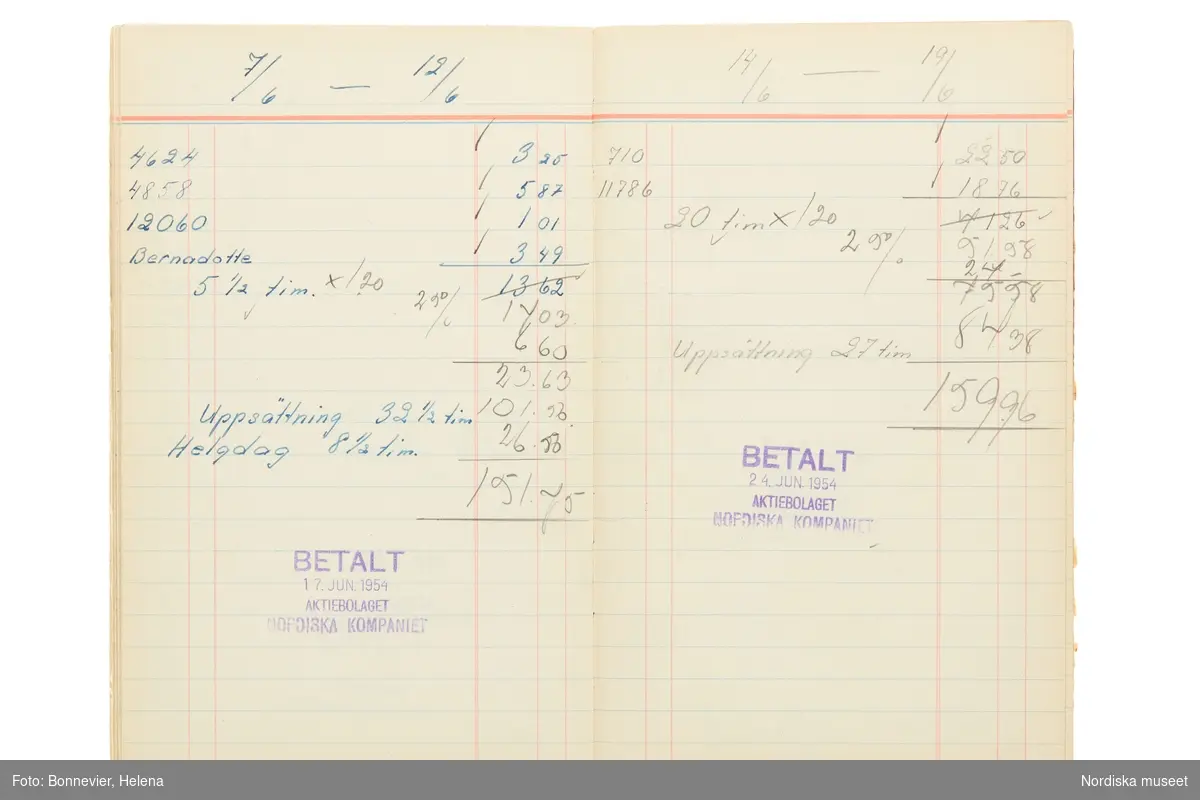 7/6 — 12/6
4624 3 25
4858 5 87
12060 1 01
Bernadotte 3 49
5 1/2 tim. x 1.20 25% 13 62
17 03
6 60
23.63
Uppsättning 32 1/2 tim 101.56
Helgdag 8 1/2 tim. 26.56
151.75
BETALT
17. JUN. 1954
AKTIEBOLAGET
NORDISKA KOMPANIET
14/6 — 19/6
710 22 50
11786 18 76
20 tim x 1.20 41 26
25% 51 58
24 -
75 58
Uppsättning 27 tim 84 38
159.96
BETALT
24. JUN. 1954
AKTIEBOLAGET
NORDISKA KOMPANIET
Foto: Bonnevier, Helena
Nordiska museet